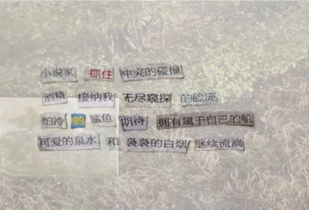 小说家 抓住 冲突的碰撞
酒精 接纳我 无尽窥探 的脸流
怕冷 的 鲨鱼 期待 拥有属于自己的船
可爱的泉水 和 袅袅的白烟 继续流淌